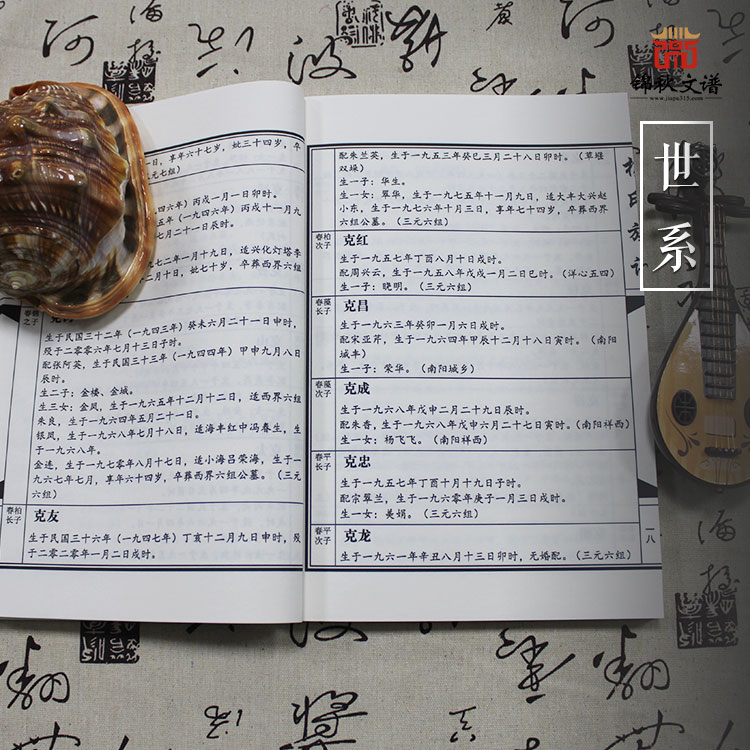 锦秋文谱
www.jiapu315.com
世系
享年六十七岁，妣三十四岁，卒
六组）
（一九四六年）丙戌一月一日卯时。
五年（一九四六年）丙戌十一月九
七月二十一日辰时。
七二年一月十九日，适兴化灯塔李
二月十日，妣七十岁，卒葬西界六组
生于民国三十二年（一九四三年）癸未六月二十一日申时，
殁于二零零六年七月十三日子时。
配张阿英，生于民国三十三年（一九四四年）甲申九月八日
辰时。
生二子：金楼、金城。
生三女：金凤，生于一九六五年十二月十二日，适西界六组
朱良，生于一九六四年五月二十一日。
银凤，生于一九六八年七月十八日，适海丰红中冯春生，生
于一九六八年。
金连，生于一九七零年八月十七日，适小海吕荣海，生于一
九六七年七月，享年六十四岁，卒葬西界六组公墓。（三元
六组）
春柏长子
克友
生于民国三十六年（一九四七年）丁亥十二月九日申时，殁
于二零二零年一月二日戌时。
配朱兰英，生于一九五三年癸巳三月二十八日卯时。（草堰
双垛）
生一子：华生。
生一女：翠华，生于一九七五年十一月九日，适大丰大兴赵
小东，生于一九七六年十月三日，享年七十四岁，卒葬西界
六组公墓。（三元六组）
春柏次子
克红
生于一九五七年丁酉八月十日戌时。
配周兴云，生于一九五八年戊戌一月二日巳时。（洋心五四）
生一子：晓明。（三元六组）
春藻长子
克昌
生于一九六三年癸卯一月六日戌时。
配宋亚芹，生于一九六四年甲辰十二月十八日寅时。（南阳
城丰）
生一子：荣华。（南阳城乡）
春藻次子
克成
生于一九六八年戊申二月二十九日辰时。
配朱香，生于一九六八年戊申六月二十七日寅时。（南阳祥西）
生一女：杨飞飞。（南阳祥西）
春平长子
克忠
生于一九五七年丁酉十月十九日子时。
配宗翠兰，生于一九六零年庚子一月三日戌时。
生一女：美娟。（三元六组）
春平次子
克龙
生于一九六一年辛丑八月十三日卯时，无婚配。（三元六组）
一八